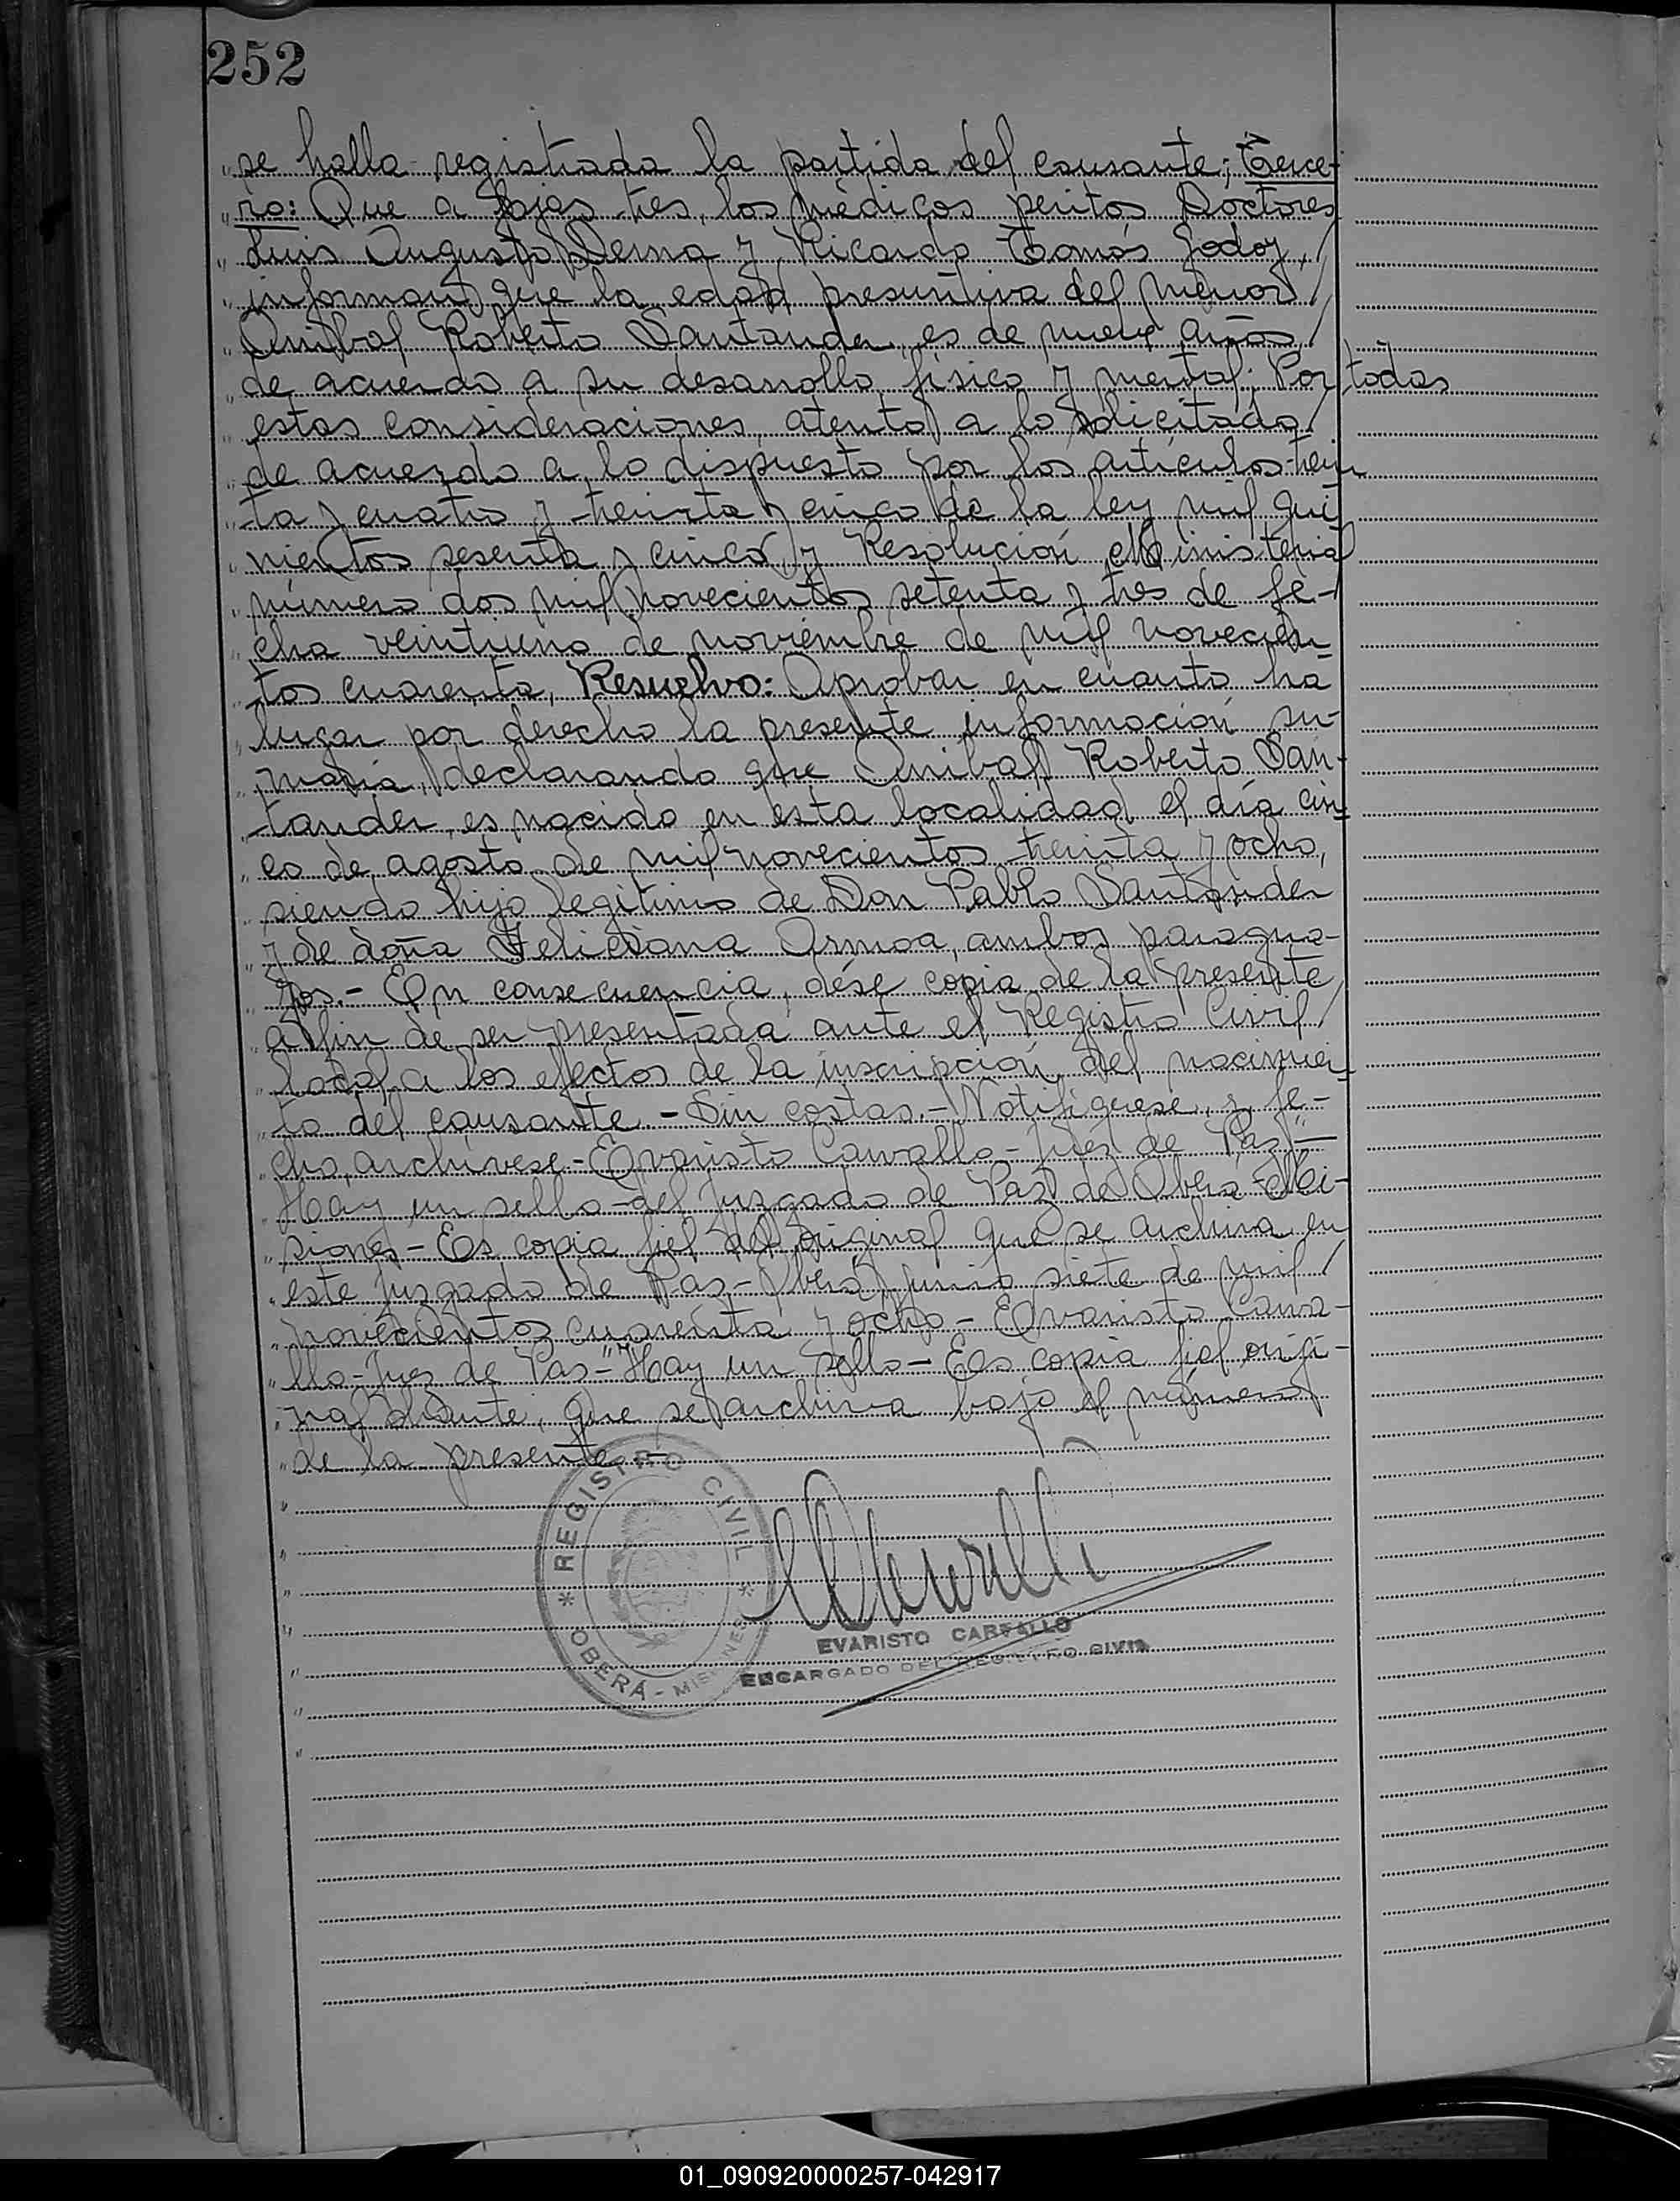 252
se halla registrada la partida del causante; Terce-
ro: Que a fojas tres, los médicos peritos Doctores
Luis Augusto Derna y Ricardo Tomás Godoy,/
informan que la edad presuntiva del menor/
Anibal Roberto Santander, es de nueve años/
de acuerdo a su desarrollo físico y mental; Por todas
estas consideraciones, atento a lo solicitado/
de acuerdo a lo dispuesto por los artículos trein
ta y cuatro y treinta y cinco de la ley mil qui
nientos sesenta y cinco, y Resolución Ministerial
número dos mil novecientos setenta y tres de fe-
cha veintiuno de noviembre de mil novecien
tos cuarenta, Resuelvo: Aprobar en cuanto ha
lugar por derecho la presente información su-
maria, declarando que Anibal Roberto San-
tander, es nacido en esta localidad el día cin-
co de agosto de mil novecientos treinta y ocho,
siendo hijo legítimo de Don Pablo Santander
y de doña Feliciana Armoa, ambos paragua-
yos.- En consecuencia, dése copia de la presente
a fin de ser presentada ante el Registro Civil/
local a los efectos de la inscripción del nacimien-
to del causante.- Sin costas.- Notifíquese, y fe-
cho, archívese.- Evaristo Carvallo - Juez de Paz"-
Hay un sello del Juzgado de Paz de Oberá - Mi-
siones - Es copia fiel del original que se archiva en
este Juzgado de Paz - Oberá, junio siete de mil/
novecientos cuarenta y ocho - Evaristo Carva-
llo - Juez de Paz-" Hay un sello - Es copia fiel origi-
nal que se archiva bajo el número
de la presente.-
* REGISTRO CIVIL *
OBERÁ - MISIONES
EVARISTO CARVALLO
ENCARGADO DEL REGISTRO CIVIL
01_090920000257-042917